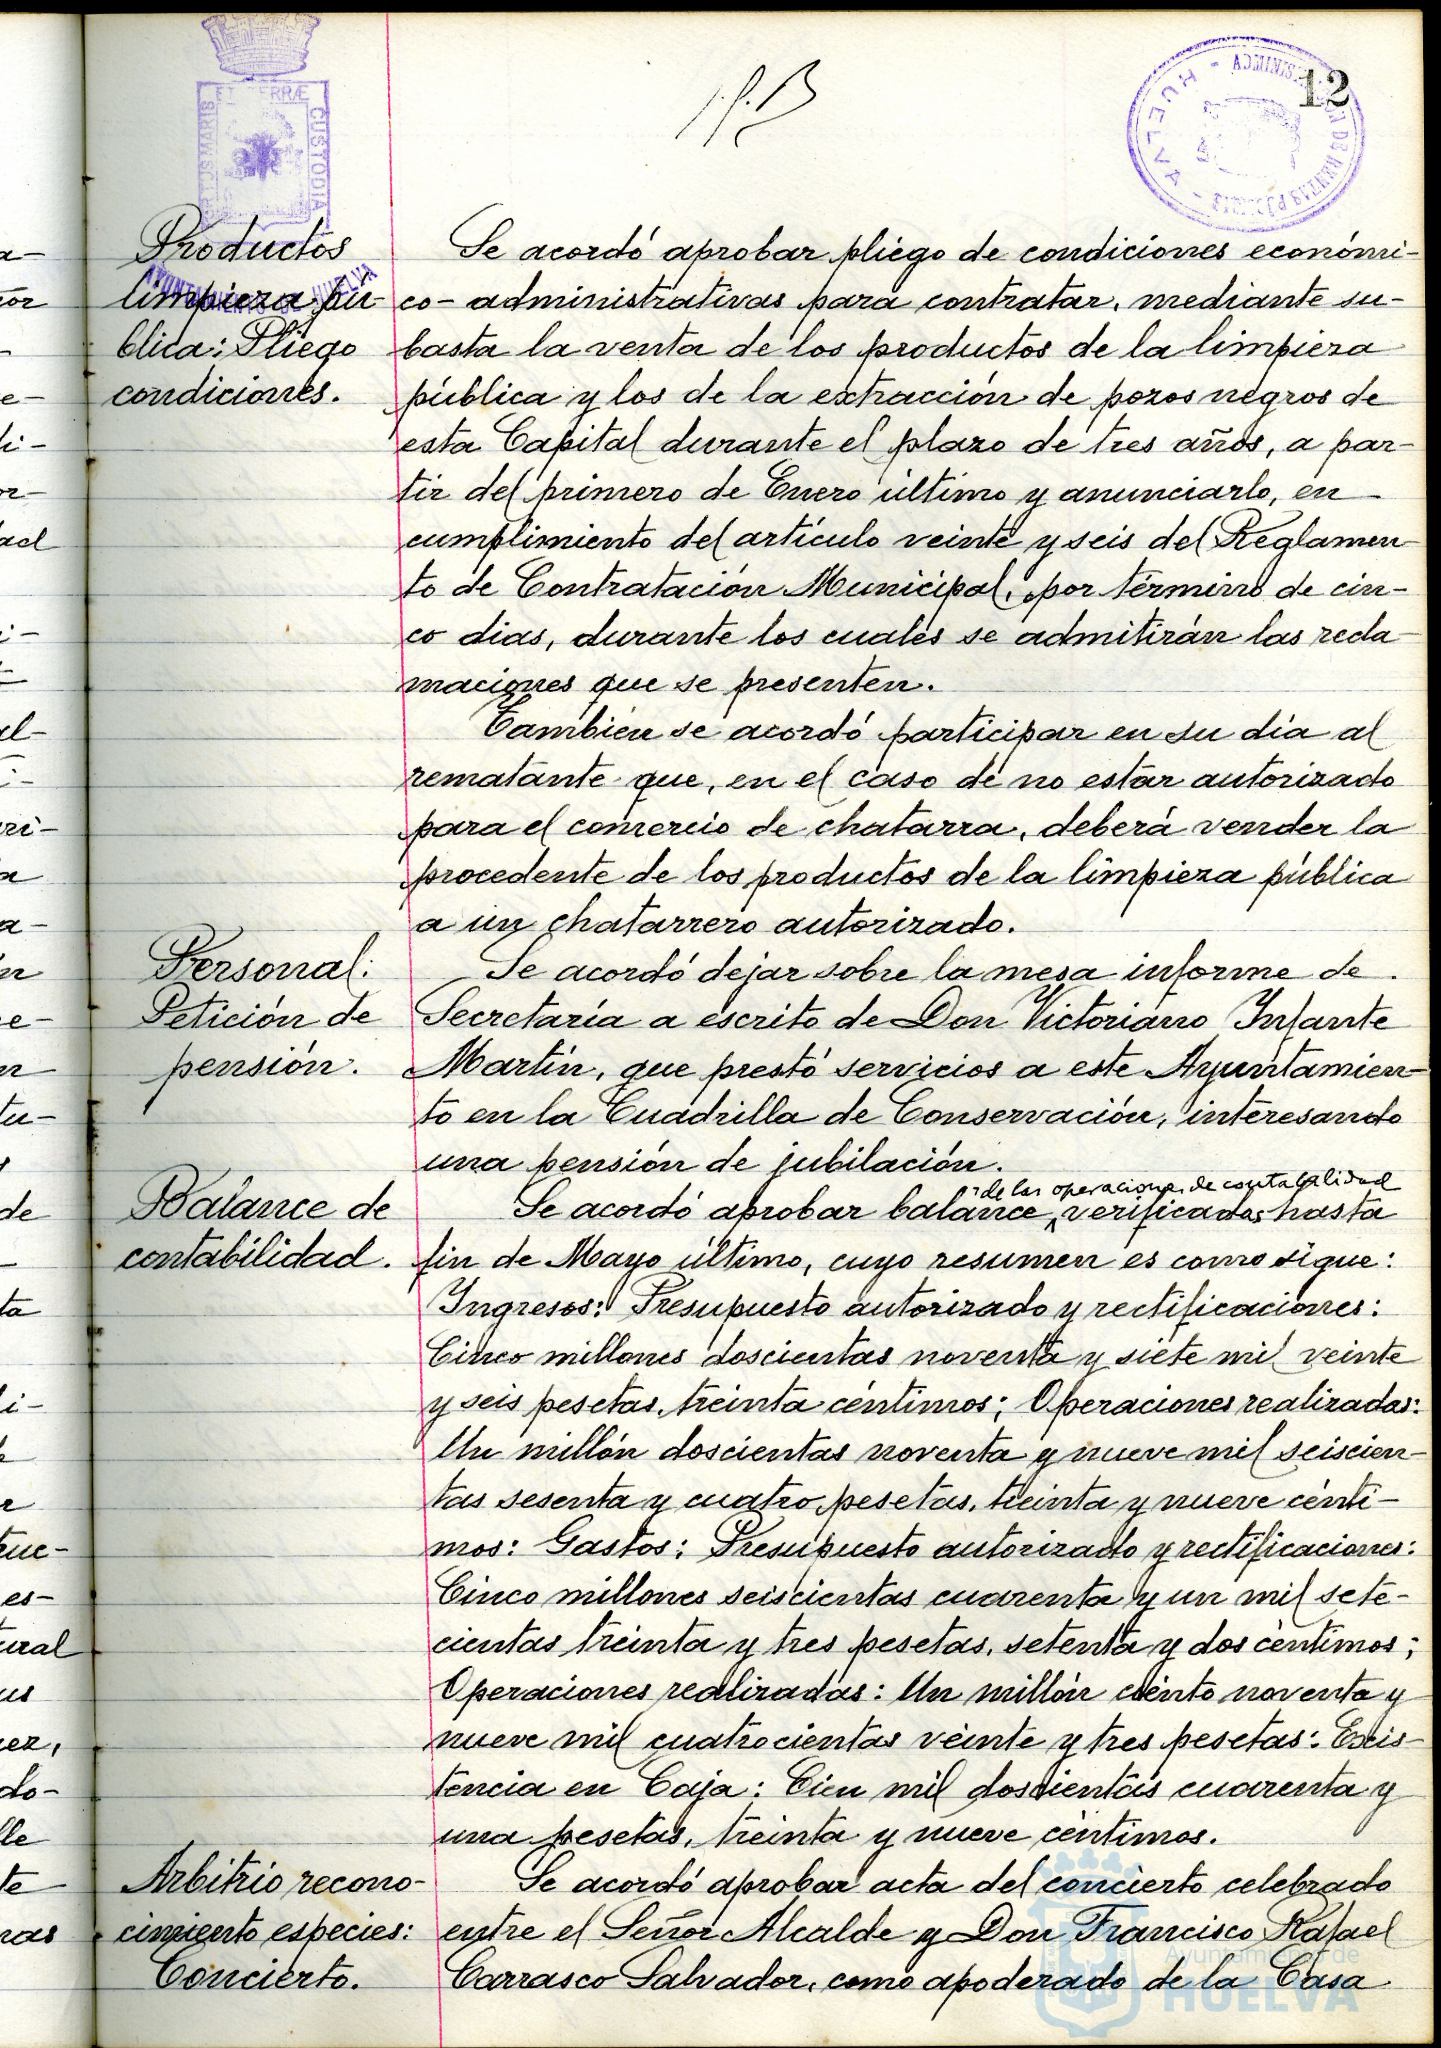 12
Productos
limpieza pú-
blica: Pliego
condiciones.
Se acordó aprobar pliego de condiciones económi-
co-administrativas para contratar, mediante su-
basta la venta de los productos de la limpieza
pública y los de la extracción de pozos negros de
esta Capital durante el plazo de tres años, a par-
tir del primero de Enero último y anunciarlo, en
cumplimiento del artículo veinte y seis del Reglamen-
to de Contratación Municipal, por término de cin-
co dias, durante los cuales se admitirán las recla-
maciones que se presenten.
También se acordó participar en su día al
rematante que, en el caso de no estar autorizado
para el comercio de chatarra, deberá vender la
procedente de los productos de la limpieza pública
a un chatarrero autorizado.
Personal:
Petición de
pensión.
Se acordó dejar sobre la mesa informe de
Secretaría a escrito de Don Victoriano Infante
Martín, que prestó servicios a este Ayuntamien-
to en la Cuadrilla de Conservación, interesando
una pensión de jubilación.
Balance de
contabilidad.
de las operaciones de contabilidad
Se acordó aprobar balance, verificadas hasta
fin de Mayo último, cuyo resumen es como sigue:
Ingresos: Presupuesto autorizado y rectificaciones:
Cinco millones doscientas noventa y siete mil veinte
y seis pesetas, treinta céntimos; Operaciones realizadas:
Un millón doscientas noventa y nueve mil seiscien-
tas sesenta y cuatro pesetas, treinta y nueve cénti-
mos: Gastos: Presupuesto autorizado y rectificaciones:
Cinco millones seiscientas cuarenta y un mil sete-
cientas treinta y tres pesetas, setenta y dos céntimos;
Operaciones realizadas: Un millón ciento noventa y
nueve mil cuatrocientas veinte y tres pesetas: Exis-
tencia en Caja: Cien mil doscientas cuarenta y
una pesetas, treinta y nueve céntimos.
Arbitrio recono-
cimiento especies:
Concierto.
Se acordó aprobar acta del concierto celebrado
entre el Señor Alcalde y Don Francisco Rafael
Carrasco Salvador, como apoderado de la Casa
CUSTODIA
AYUNTAMIENTO DE HUELVA
HUELVA
Ayuntamiento de
HUELVA